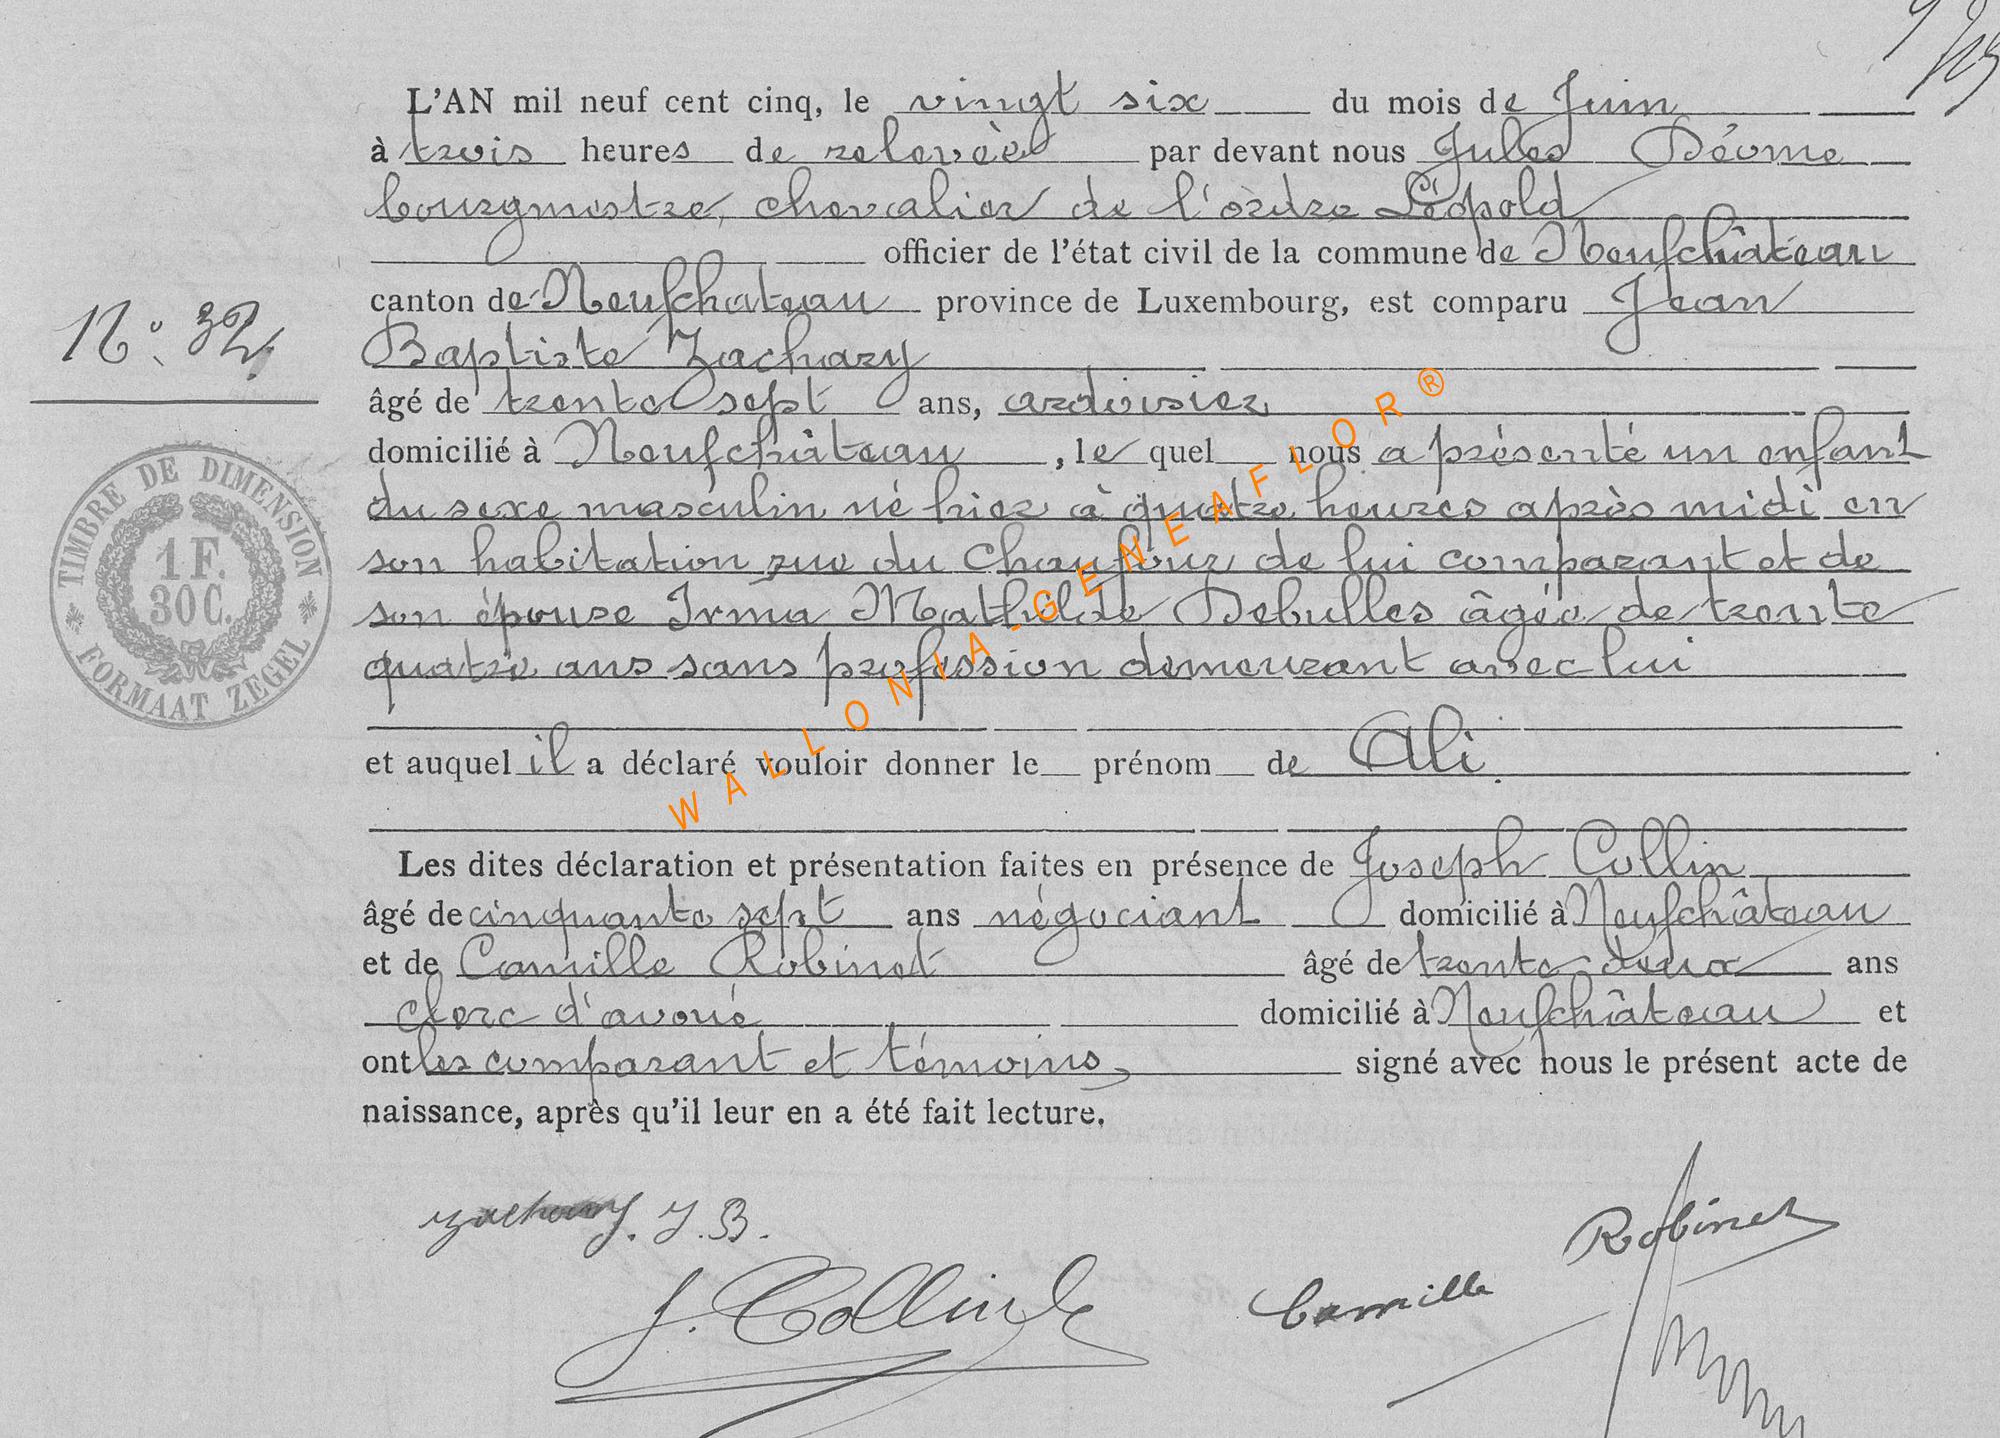 L'AN mil neuf cent cinq, le vingt six du mois de Juin
à trois heures de relevée par devant nous Jules Déome
bourgmestre, chevalier de l'ordre Léopold
officier de l'état civil de la commune de Neufchâteau
canton de Neufchateau province de Luxembourg, est comparu Jean
N°. 32,
Baptiste Zachary
âgé de trente sept ans, ardoisier
domicilié à Neufchâteau, le quel nous a présenté un enfant
du sexe masculin né hier à quatre heures après midi en
son habitation rue du Chaufour de lui comparant et de
son épouse Irma Mathilde Debulles âgée de trente
quatre ans sans profession demeurant avec lui
et auquel il a déclaré vouloir donner le prénom de Ali.
Les dites déclaration et présentation faites en présence de Joseph Collin
âgé de cinquante sept ans négociant domicilié à Neufchâteau
et de Camille Robinet âgé de trente deux ans
clerc d'avoué domicilié à Neufchâteau et
ont les comparant et témoins, signé avec nous le présent acte de
naissance, après qu'il leur en a été fait lecture.
Zachary. J. B.
J. Collin
Camille Robinet
TIMBRE DE DIMENSION
1 F.
30 C.
FORMAAT ZEGEL
WALLONIA-GENEAFLOR®